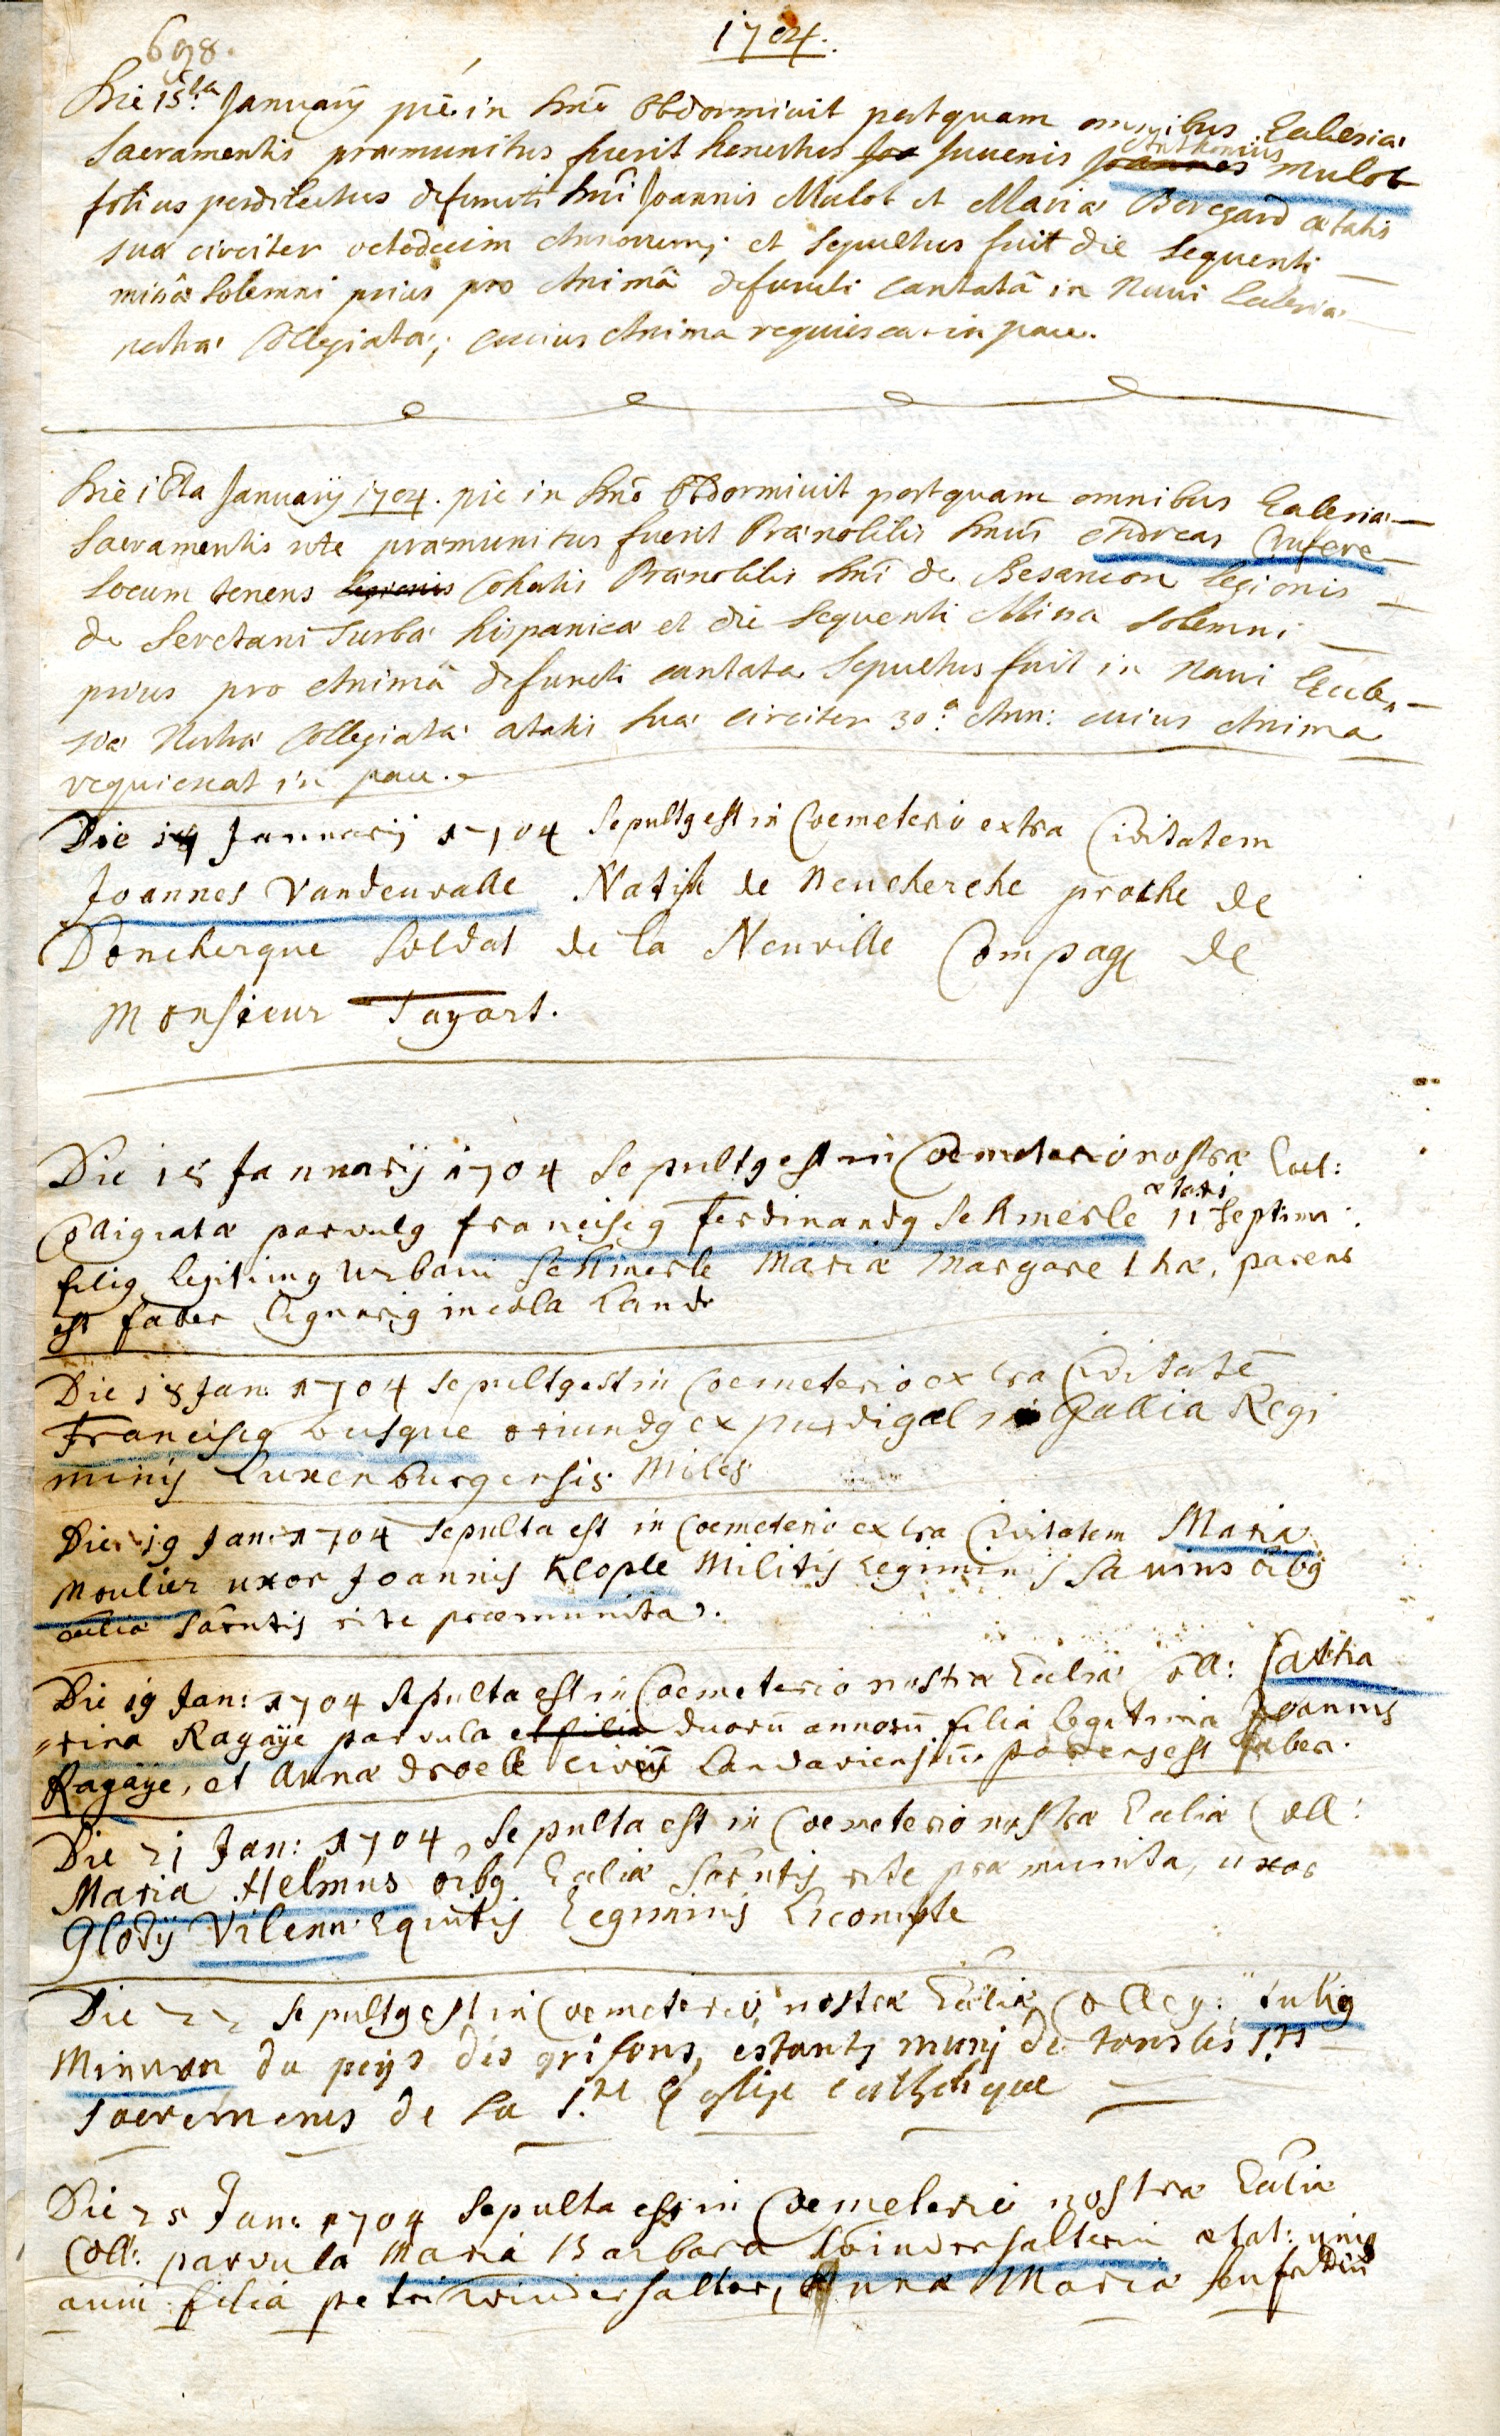 698.
1704.
Die 15ta Januarÿ pie in Dno Obdormiuit postquam omnibus Ecclesiæ
Sacramentis præmunitus fuerit honestus Juuenis Anthonius Mulot
filius perdilectus defuncti Dni Joannis Mulot et Mariæ Beregard ætatis
suæ circiter octodecim Annorum; et Sepultus fuit die Sequenti
missâ Solemni prius pro Animâ defuncti cantatâ in Naui Ecclesiæ
nostræ Collegiatæ; cuius Anima requiescat in pace.
Die 16ta Januarÿ 1704. pie in Dno Obdormiuit postquam omnibus Ecclesiæ
Sacramentis rite præmunitus fuerit Prænobilis Dnus Andreas
Locum tenens legionis Cohortis Prænobilis Dni de Besancon legionis
de Turbæ hispanicæ et die Sequenti Missa Solemni
prius pro Animâ defuncti cantata Sepultus fuit in Naui Eccle-
siæ Nostræ Collegiatæ ætatis suæ circiter 30.a Ann: cuius Anima
requiescat in pace.
Die Januarij 1704 Sepultg est in Coemeterio extra Civitatem
Joannes Vandeuvalle Natif de Neucherche proche de
Doncherque Soldat de la Neuville Compag de
Monsieur Tayart.
Die 18 Januarij 1704 Sepultg est in Coemeterio nostræ Eccl:
Colligiatæ parvulg franciscg Ferdinandg Schmerle ætatis 11 Septima:
filig legitimg Urbani Schmerle Mariæ Margarethæ, parens
est faber lignarig incola Land:
Die 18 Jan: 1704 Sepultg est in Coemeterio extra Civitatē
Franciscg busque oriundg ex purdigal Gallia Regi
minis Luxenburgensis Miles
Die 19 Jan: 1704 Sepulta est in Coemeterio extra Civitatem Maria
Moulier uxor Joannis Klople Militis Regiminis oībg
ecclia Sacrntis rite præmunita.
Die 19 Jan: 1704 Sepulta est in Coemeterio nostræ Ecclīæ Coll: Catha
rina Ragaÿe parvula et filia duorū annorū filia legitima Joannis
Ragaÿe, et Annæ droelé civiū Landaviensiū parens est faber.
Die 21 Jan: 1704, Sepulta est in Coemeterio nostræ Ecclia Coll:
Maria Helmus oībg Eccliæ Sacrntis rite præmunita, uxor
Glodij Vilenn Equitis Regiminis Lecompte
Die 22 Sepultg est in Coemeterio nostræ Ecclia Colleg:
Minuron du peijs des grisons, estants munj de tous les Sts
Sacremens de la Ste Eglise catholique
Die 25 Jan: 1704 Sepulta est in Coemeterio nostræ Eccliæ
Coll: parvula Maria Barbara Windersalterin ætat: unig
anni filia petri Windersalter, Anna Maria